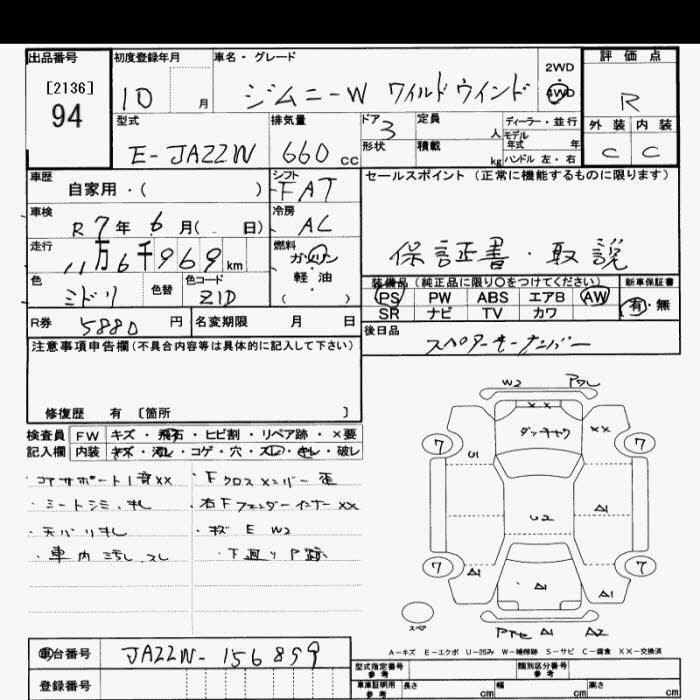 出品番号 初度登録年月 車名・グレード 2WD 評価点
[2136] 10 月 ジムニーW ワイルドウインド 4WD R
94 型式 排気量 ドア 定員 人 ディーラー・並行 外装 内装
E-JAZZW 660 cc 3 モデル年式 年 C C
形状 積載 kg ハンドル 左・右
車歴 自家用・( ) シフト FAT セールスポイント (正常に機能するものに限ります)
車検 R 7年 6月( 日) 冷房 AC
走行 11万6千969km 燃料 ガソリン 保証書・取説
軽・油
( )
色 ミドリ 色替 色コード Z1D 装備品 (純正品に限り○をつけてください) 新車保証書
PS PW ABS エアB AW 有・無
SR ナビ TV カワ
R券 5880 円 名変期限 月 日 後日品
スペアタキーナンバー
注意事項申告欄(不具合内容等は具体的に記入して下さい)
修復歴 有 [箇所 ]
検査員 FW キズ・飛石・ヒビ割・リペア跡・×要
記入欄 内装 キズ・汚レ・コゲ・穴・スレ・キレ・破レ
・コアサポート1音XX ・Fクロスメンバー歪
・シートシミ、キレ 右Fフェンダーインナー XX
・天バリキレ ・キズ E W2
・車内汚レ、スレ ・下廻りP跡
W2 ワレ
XX
ダッチャク XX
7 7
U1
A1
U2
7 7
A1 A1 A1
スペア A1 A2
A-キズ E-エクボ U-凹み W-補修跡 S-サビ C-腐食 XX-交換済
車台番号 JAZZW-156859
登録番号
型式指定番号 参考 類別区分番号 参考
車庫証明用 参考 長さ cm 幅 cm 高さ cm